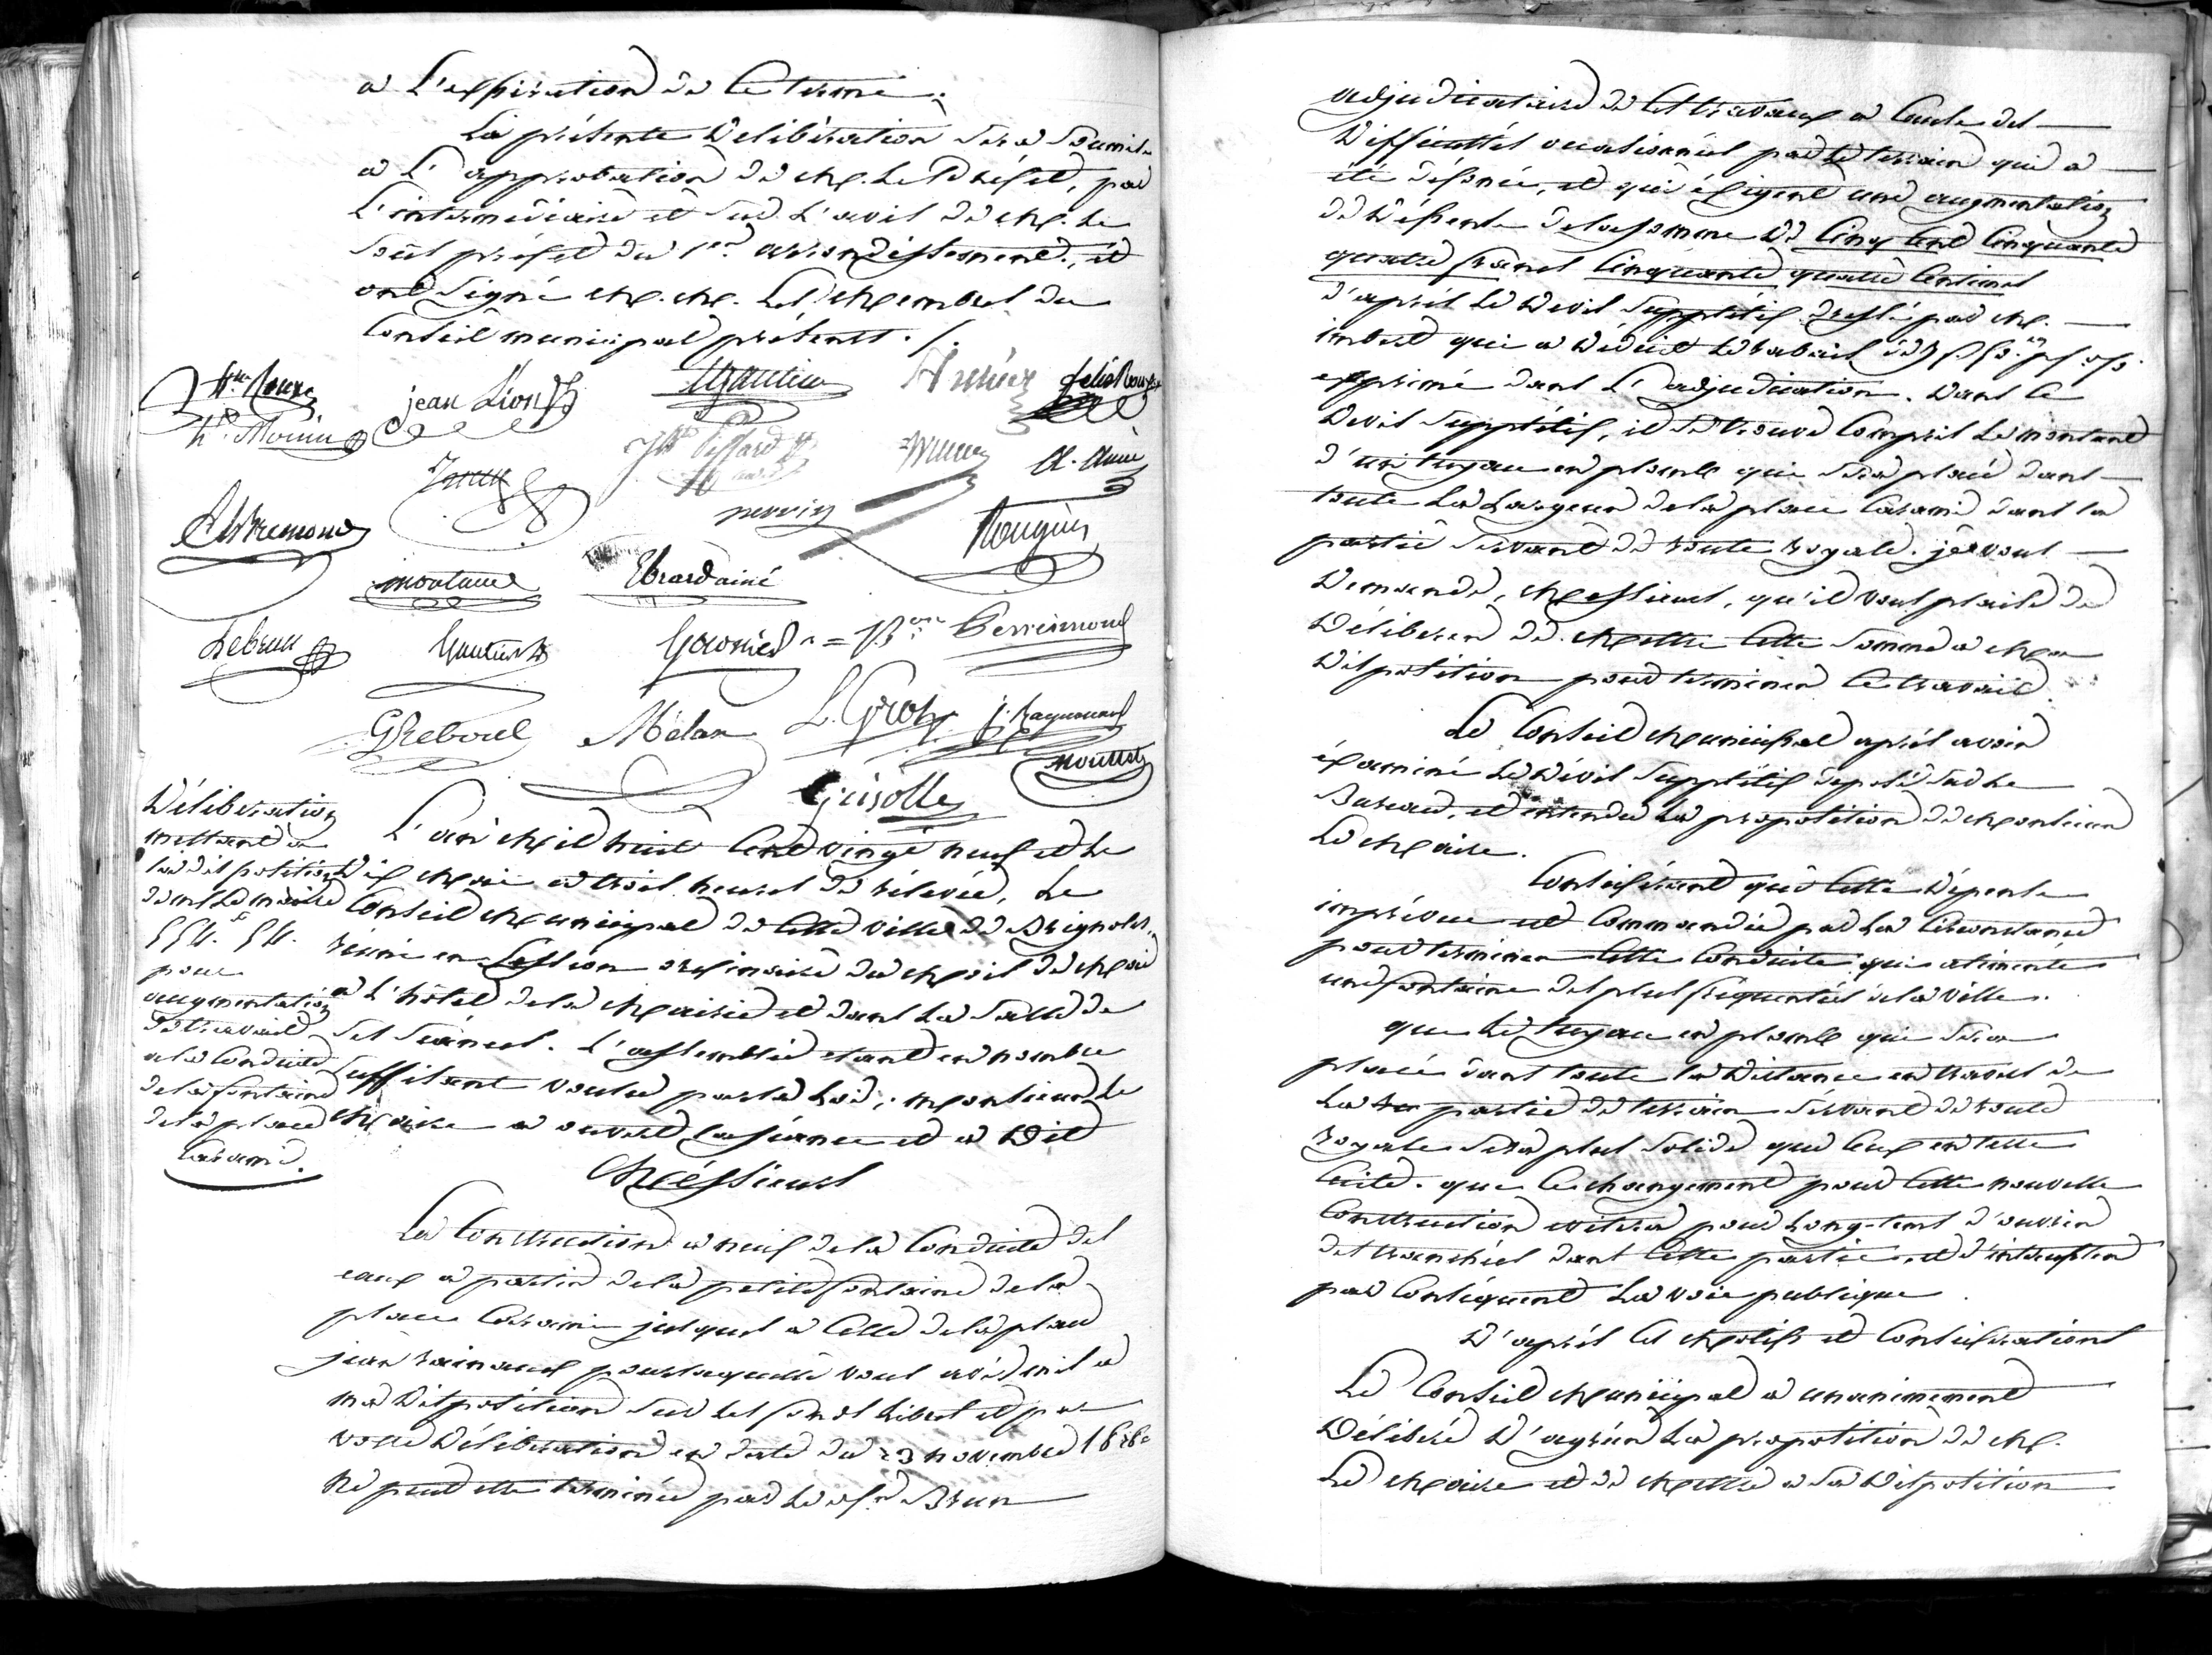 à L'expiration de ce terme.
La présente Délibération sera soumise
à L'approbation de M. Le Préfet, par
L'intermédiaire et sur L'avis de M. Le
sous préfet du 1er arrondissement, et
ont signé M. M. Les Membres du
Conseil municipal présents ./.
jean Lion
Gautier
felix Roux
hte Morin
A. Aimé
perrin
Rougier
moutaud
Ebrard ainé
Lebrun
Gautier
Garnier = Bon Perrimond
G Reboul
Mélan
L. Gros
J. Raynouard
Grisolle
Délibération
mettant à
la disposition
de mr Le maire
554.f 54.
pour
augmentation
de travail
à la Conduite
de la fontaine
de la place
Carami.
L'an Mil huit Cent vingt neuf et Le
Dix Mai à trois heures de rélevée, Le
Conseil Municipal de Cette ville de Brignoles,
réuni en Session ordinaire du Mois de Mai
à L'hôtel de la Mairie et dans La Salle de
Ses Séances. L'assemblée étant en nombre
Suffisant voulu par la Loi, monsieur Le
Maire a ouvert la séance et a Dit
Messieurs
La Construction à neuf de la Conduite des
eaux à partir de la petite fontaine de la
place Carami jusques à Celle de la place
jean rainaud pour laquelle vous avés mis à
ma Disposition sur Les fonds Libres et par
votre Délibération en date du 23 novembre 1828
Ne peut être terminée par Le sr Brun
adjudicataire de Cet travaux à Cause des
Difficultés occasionnées par Le terrain qui a
été défoncé, et qui éxigent une augmentation
de Dépense de la somme de Cinq Cent Cinquante
quatre francs Cinquante quatre Centimes
d'après Le Devis Supplétif dressé par M.
imbert qui a Déduit Le rabais
exprimé dans L'adjudication. Dans Ce
Devis Supplétif, il se trouve Compris Le montant
d'un tuyau en plomb qui sera placé dans
toute La Largeur de la place Carami dans la
partie servant de route royale. je vous
Demande, Messieurs, qu'il vous plaise de
Délibérer de Mettre Cette Somme à Ma
Disposition pour terminer Ce travail.
Le Conseil Municipal après avoir
éxaminé Le Dévis Supplétif déposé sur Le
Bureau, et entendu La proposition de Monsieur
Le Maire.
Considérant que Cette Dépense
imprévue est Commandée par La Circonstance
pour terminer Cette Conduite qui alimente
une fontaine des plus fréquentées de la ville.
que Le tuyau en plomb qui sera
placé dans toute la Distance en travers de
La partie de terrain Servant de route
royale sera plus Solide que Ceux en terre
Cuite. que Ce changement pour Cette nouvelle
Construction evitera pour Long-tems d'ouvrir
des tranchées dans Cette partie, et d'intercepter
par Conséquent La voie publique.
D'après Ces Motifs et Considérations
Le Conseil Municipal a unanimement
Délibéré D'agréer La proposition de M.
Le Maire et de Mettre à Sa Disposition